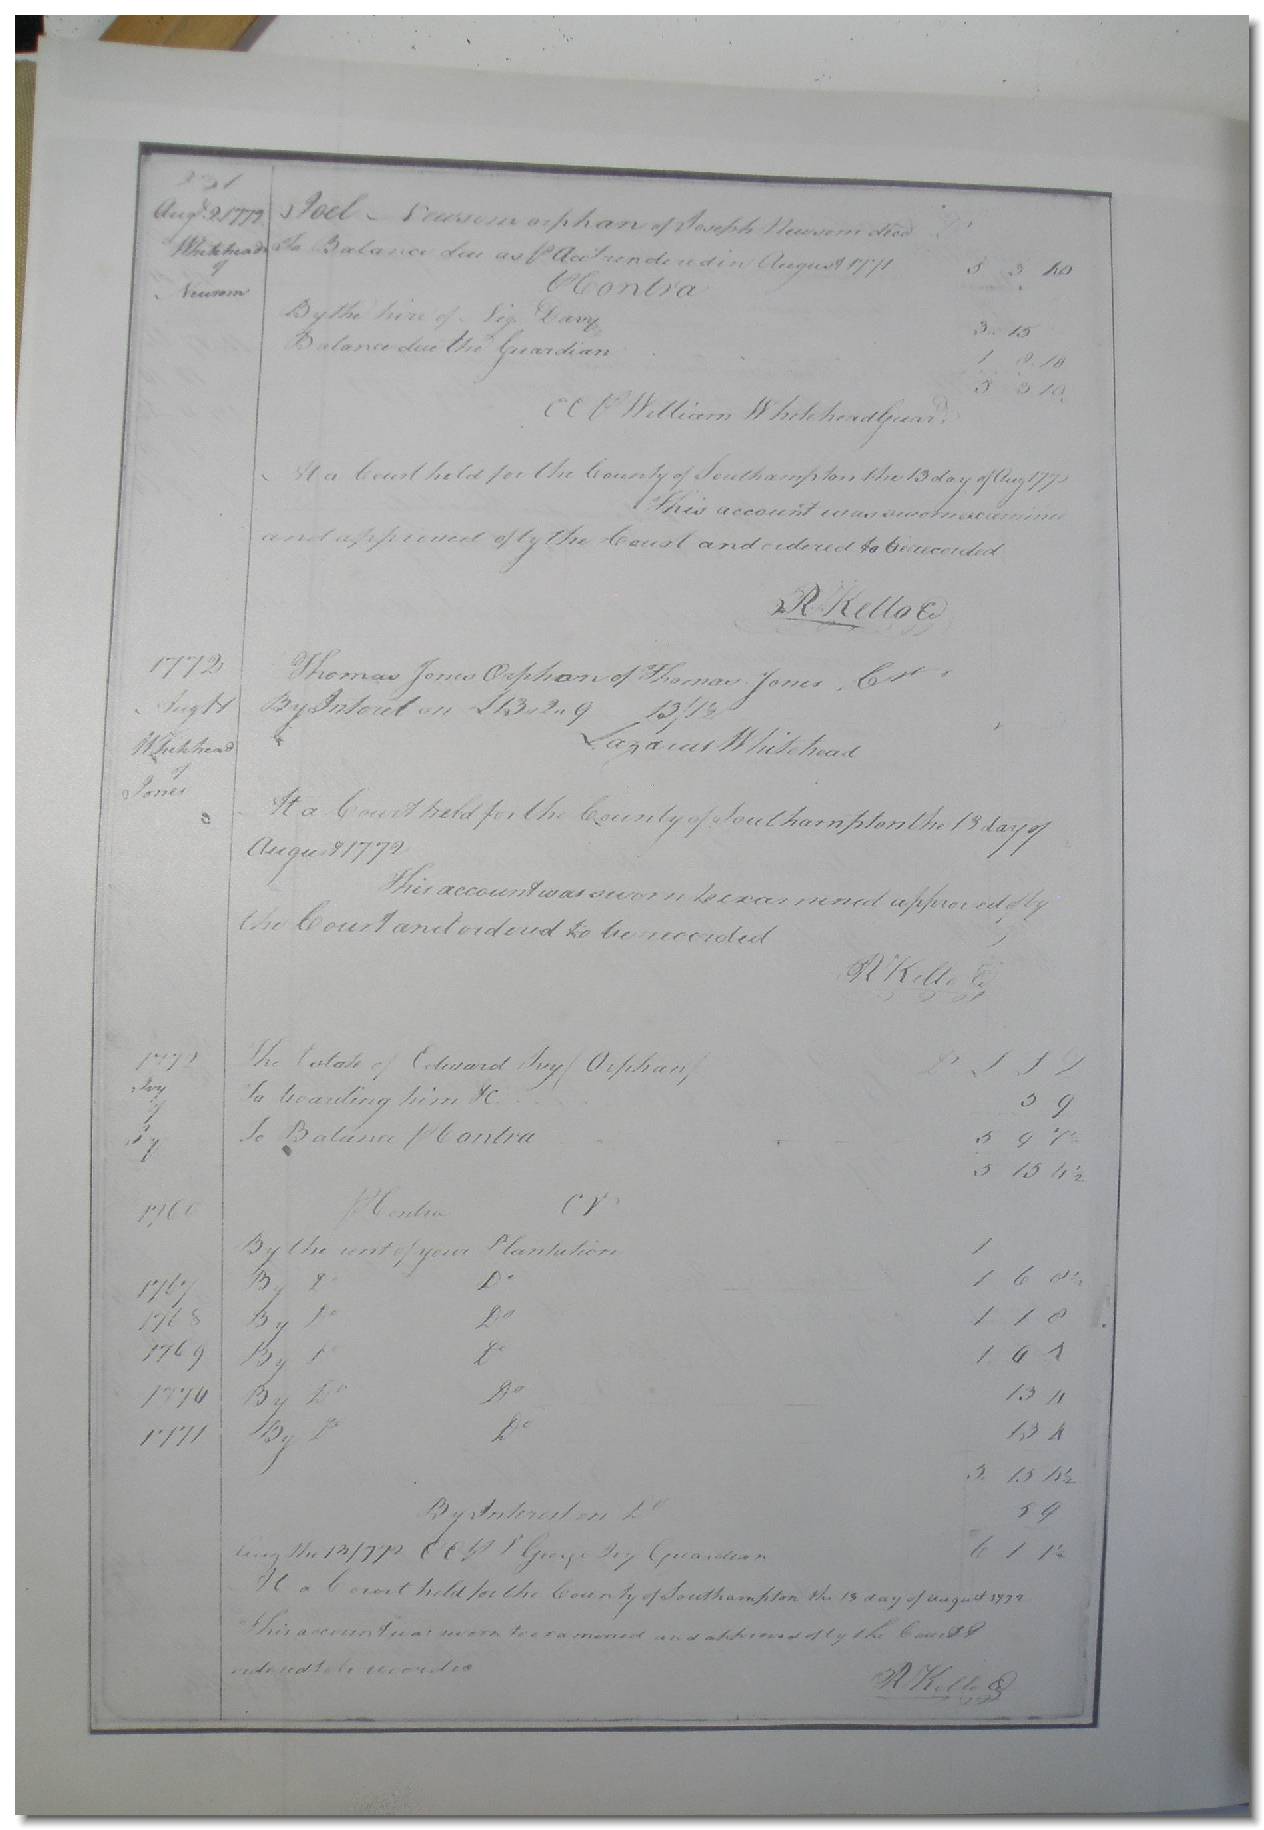 231
Augt 2 1772 Joel Newsom orphan of Joseph Newsom decd Dr
Whitehead To Balance due as P Acct rendered in August 1771 5 3 10
of P Contra
Newsom
By the hire of Davy 3 15
Balance due the Guardian 1 8 10
5 3 10
P William Whitehead Guard
At a Court held for the County of Southampton the 13 day of Aug 1772
This account was sworn examine
and approved of by the Court and ordered to be recorded
R Kello
1772 Thomas Jones Orphan of Thomas Jones Cr
Augt By Interest on
Whitehead Lazarus Whitehead
of
Jones
At a Court held for the County of Southampton the 13 day of
August 1772
This account was sworn to examined approved of by
the Court and ordered to be recorded
R Kello
1772 The Estate of Edward Ivy Orphan
Ivy To boarding him &c 5 9
of
Ivy To Balance P Contra 5 9 7½
5 15 4½
1766 P Contra Cr
By the rent of your Plantation 1
1767 By Do Do 1 6
1768 By Do Do 1 1
1769 By Do Do 1
1770 By Do Do 13 4
1771 By Do Do 13 4
5 15 4½
By Interest on Do 5 9
Aug the 13 1772 George Ivy Guardian 6 1 1½
At a Court held for the County of Southampton the 13 day of August 1772
This account was sworn to examined and approved of by the Court &
ordered to be recorded
R Kello